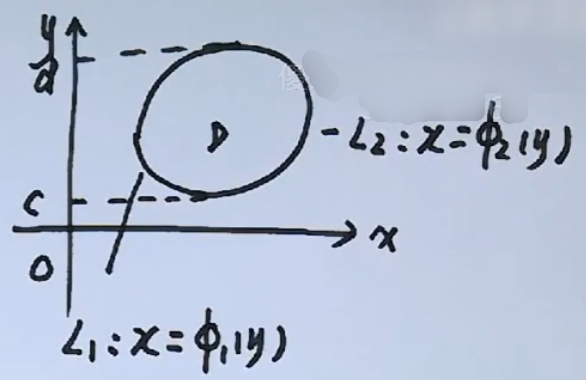 y
d
D
L₂: x = φ₂(y)
c
x
O
L₁: x = φ₁(y)